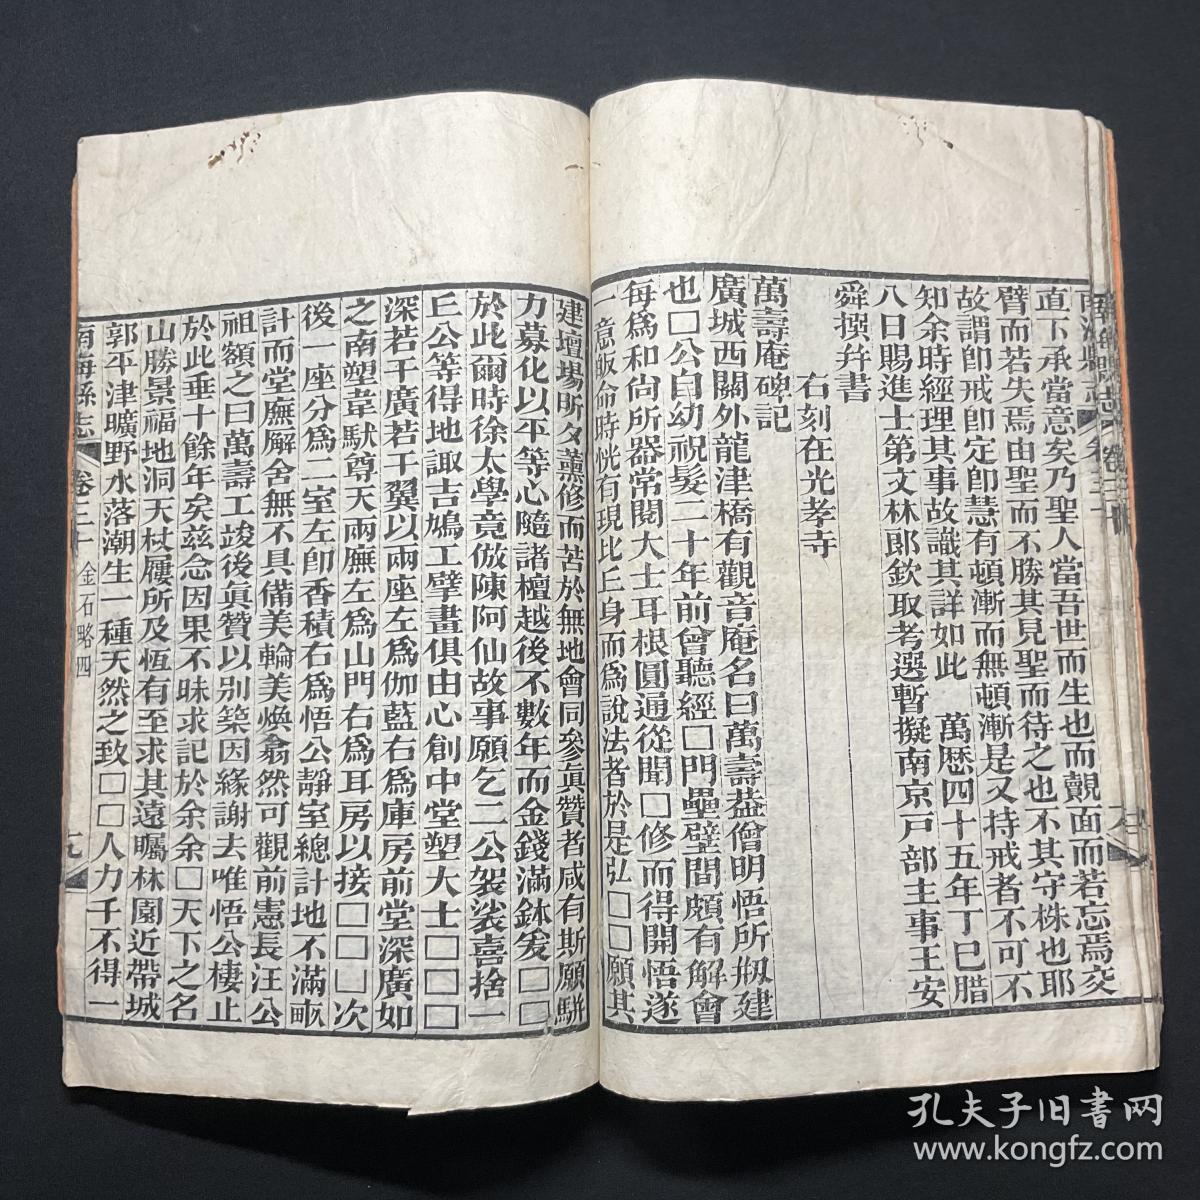 直下承當意矣乃聖人當吾世而生也而覿面而若忘焉交
臂而若失焉由聖而不勝其見聖而待之也不其守株也耶
故謂卽戒卽定卽慧有頓漸而無頓漸是又持戒者不可不
知余時經理其事故識其詳如此　萬歷四十五年丁巳腊
八日賜進士第文林郎欽取考選暫擬南京戸部主事王安
舜撰幷書
右刻在光孝寺
萬壽庵碑記
廣城西關外龍津橋有觀音庵名曰萬壽葢僧明悟所剏建
也□公自幼祝髮二十年前曾聽經□門壘壁間頗有解會
每爲和尚所器常閱大士耳根圓通從聞□修而得開悟遂
一意皈侖時恍有現比丘身而爲說法者於是弘□□願其
建壇場昕夕薰修而苦於無地會同參眞贊者咸有斯願駢
力募化以平等心隨諸檀越後不數年而金錢滿鉢爰□□
於此爾時徐太學竟倣陳阿仙故事願乞二公袈裟喜捨一
丘公等得地諏吉鳩工擘畫俱由心創中堂塑大士□□□
深若干廣若干翼以兩座左爲伽藍右爲庫房前堂深廣如
之南塑韋馱尊天兩廡左爲山門右爲耳房以接□□□次
後一座分爲二室左卽香積右爲悟公靜室總計地不滿畝
計而堂廡廨舍無不具備美輪美煥翕然可觀前憲長汪公
祖額之曰萬壽工竣後眞贊以別築因緣謝去唯悟公棲止
於此垂十餘年矣兹念因果不昧求記於余余□天下之名
山勝景福地洞天杖屨所及恆有至求其遠矚林園近帶城
郭平津曠野水落潮生一種天然之致□□人力千不得一
南海縣志　卷三十　金石略四　九
孔夫子旧书网
www.kongfz.com